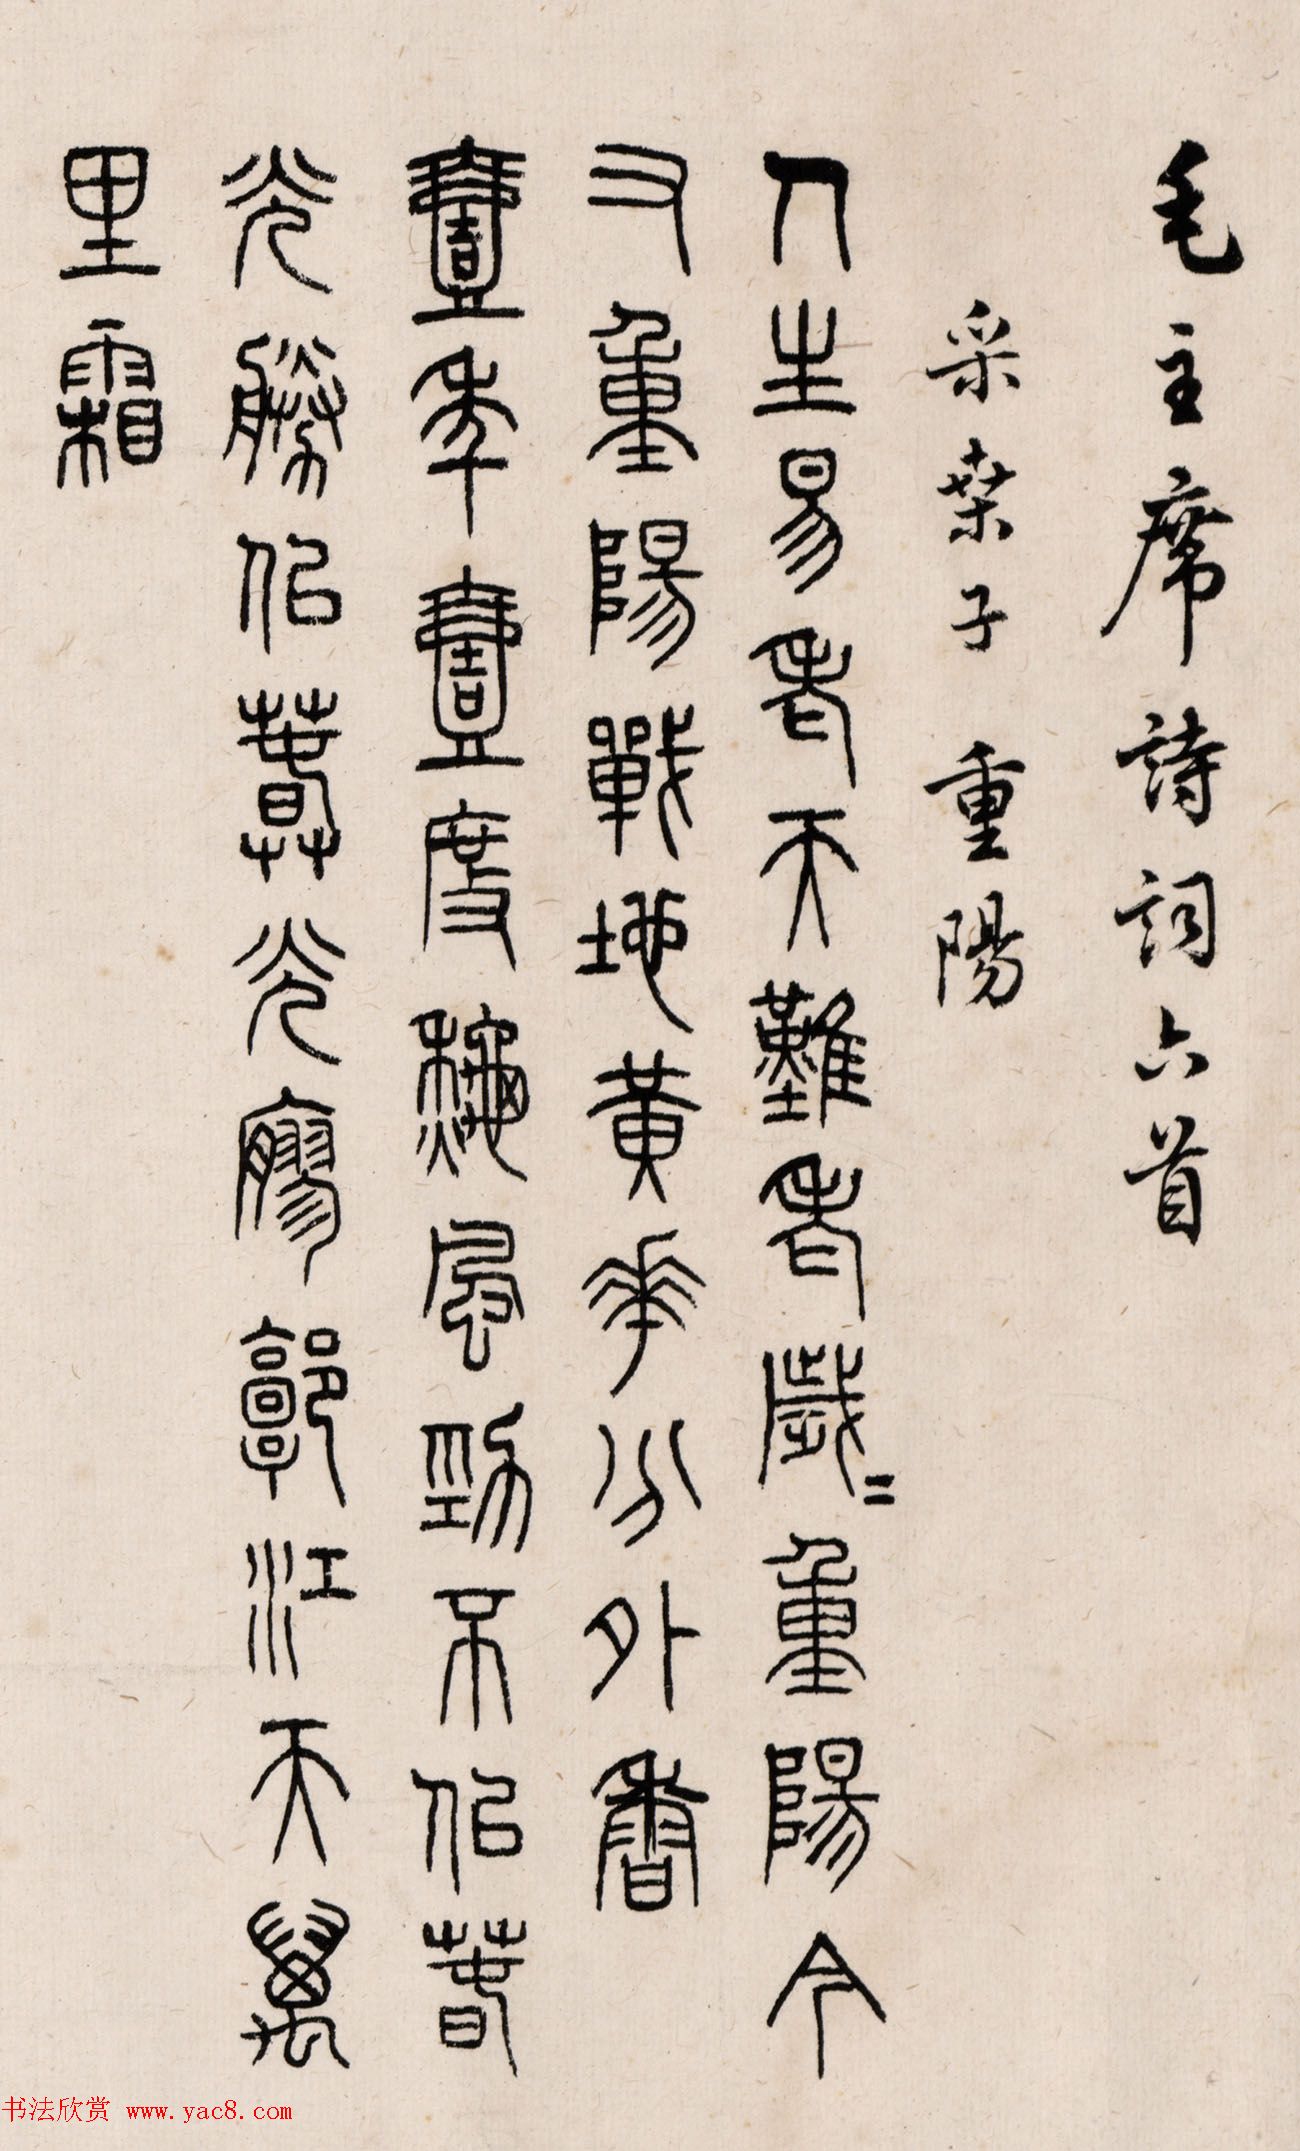 毛主席詩詞六首
采桑子 重陽
人生易老天難老歲〻重陽今
又重陽戰地黃華分外香
壹年壹度秋風勁不似春
光勝似春光廖郭江天萬
里霜
书法欣赏 www.yac8.com